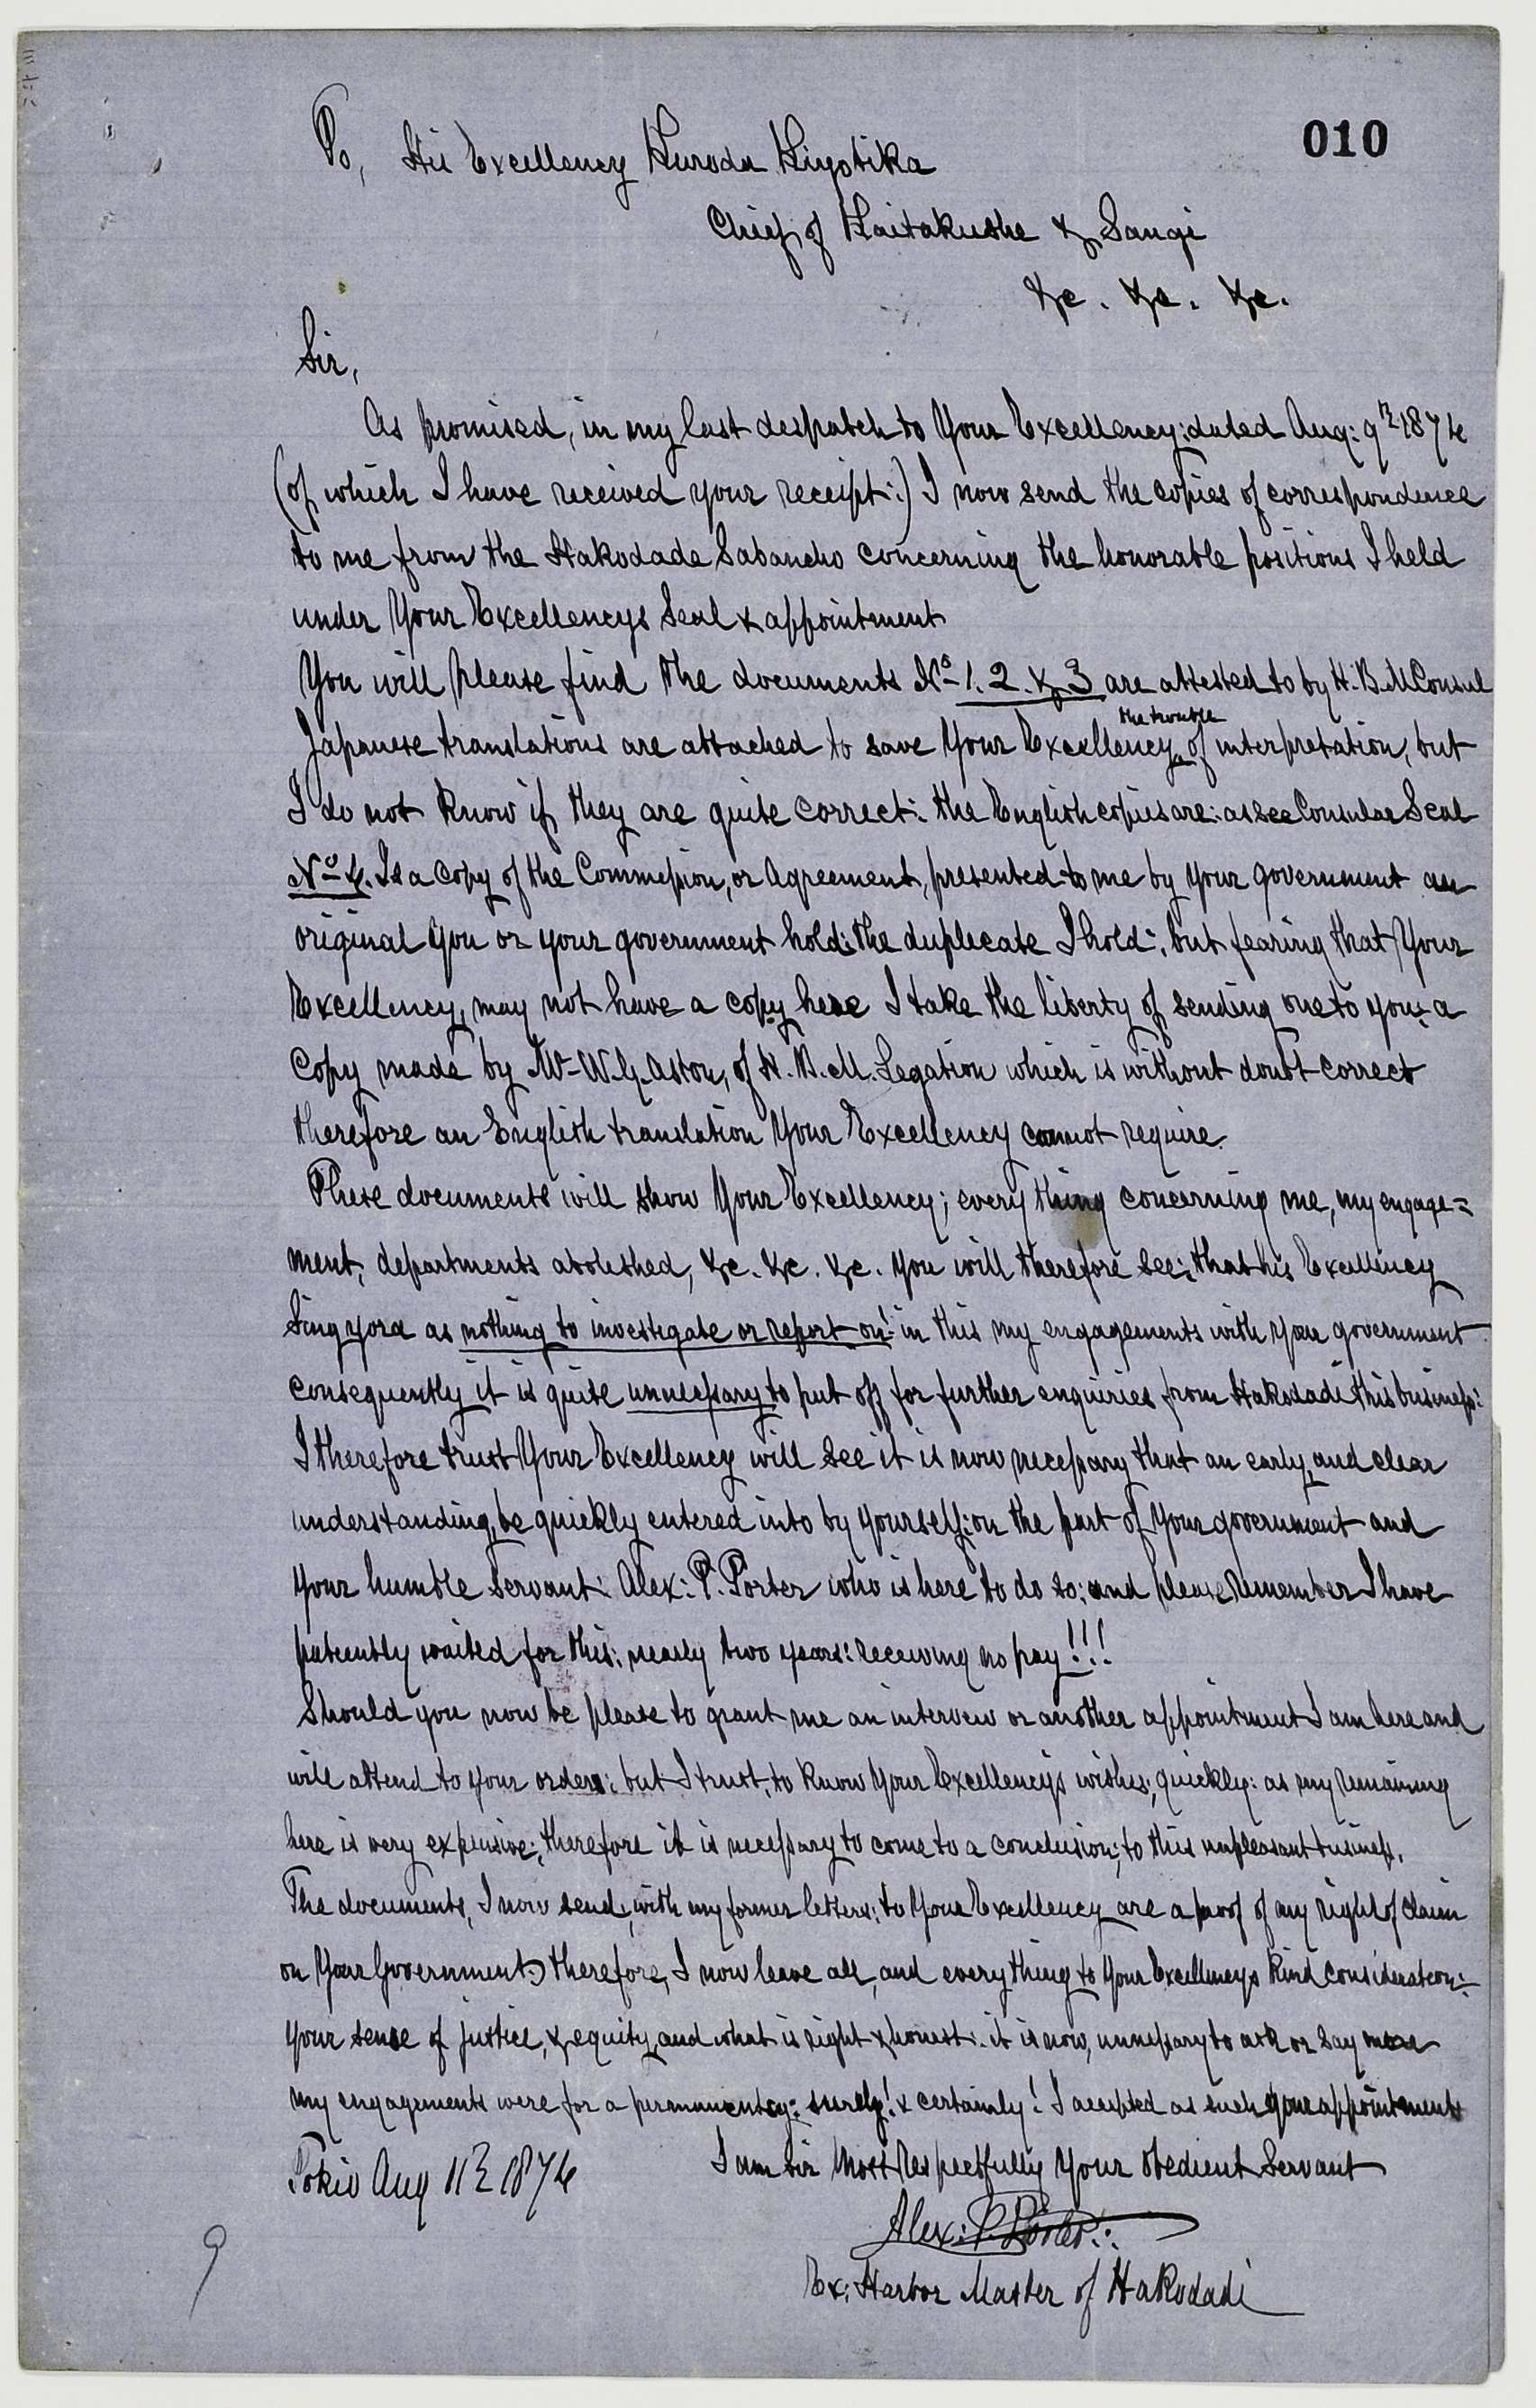 010
To, His Excellency Kuroda Kiyotika
Chief of Kaitakushe & Sangi
&c. &c. &c.
Sir,
As promised, in my last despatch to Your Excellency: dated Aug: 9th 1874
(of which I have received your receipt:) I now send the copies of correspondence
to me from the Hakodade Sabancho concerning the honorable positions I held
under Your Excellencys Seal & appointment
You will please find the documents Nos 1. 2. & 3 are attested to by H.B.M Consul
Japanese translations are attached to save Your Excellency the trouble of interpretation, but
I do not know if they are quite correct: the English copies are: as see Consular Seal
No 4. Is a copy of the Commission, or Agreement, presented to me by your government an
original you or your government hold: the duplicate I hold:, but fearing that Your
Excellency, may not have a copy here I take the liberty of sending one to you: a
Copy made by Mr W.G. Aston, of H.B.M. Legation which is without doubt correct
therefore an English translation Your Excellency cannot require.
These documents will show Your Excellency; every thing concerning me, my engage=
ment, departments abolished, &c. &c. &c. you will therefore see; that his Excellency
Sing yora as nothing to investigate or report on: in this my engagements with your government
consequently it is quite unnecessary to put off for further enquiries from Hakodadi this business:
I therefore trust Your Excellency will see it is now necessary that an early, and clear
understanding, be quickly entered into by yourself: on the part of Your government and
your humble servant: Alex: P. Porter who is here to do so: and please remember I have
patiently waited for this: nearly two years: receiving no pay!!!
Should you now be please to grant me an interview or another appointment I am here and
will attend to your orders: but I trust, to know Your Excellency's wishes; quickly: as my remaining
here is very expensive; therefore it is necessary to come to a conclusion; to this unpleasant business.
The documents, I now send; with my former letters: to Your Excellency are a proof of my right of claim
on Your Government:) therefore, I now leave all, and everything to Your Excellencys kind consideration:-
Your sense of justice, & equity, and what is right & honest: it is now, unnessary to ask or say more
my engagements were for a permanentcy: surely! & certainly! I accepted as such your appointments
Tokio Aug 11th 1874
I am Sir Most Respectfully Your Obedient Servant
Alex: P. Porter:.
Ex: Harbor Master of Hakodadi
9